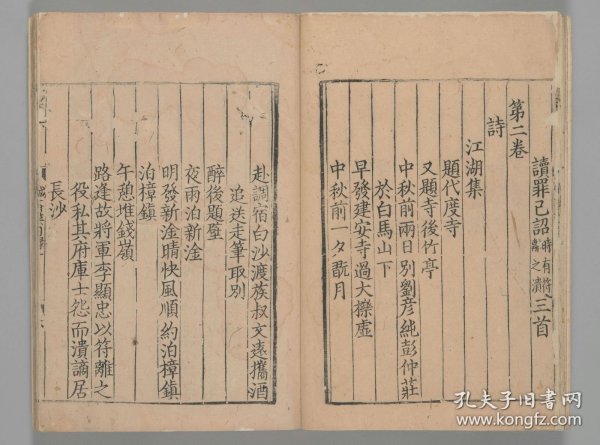 讀罪己詔時有符離之潰三首
第二卷
詩
江湖集
題代度寺
又題寺後竹亭
中秋前兩日別劉彦純彭仲莊
於白馬山下
早發建安寺過大櫟虛
中秋前一夕翫月
赴調宿白沙渡族叔文遠攜酒
追送走筆取別
醉後題壁
夜雨泊新淦
明發新淦晴快風順約泊樟鎮
泊樟鎮
午憩堆錢嶺
路逢故將軍李顯忠以符離之
役私其府庫士怨而潰謫居
長沙
孔夫子旧书网
www.kongfz.com